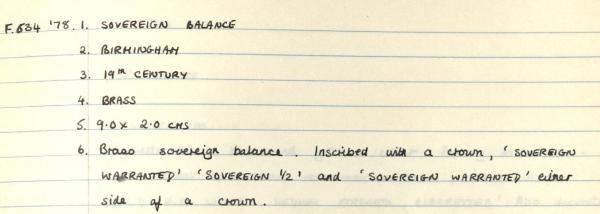 F.634 '78. 1. SOVEREIGN BALANCE
2. BIRMINGHAM
3. 19th CENTURY
4. BRASS
5. 9.0 x 2.0 CMS
6. Brass sovereign balance. Inscribed with a crown, 'SOVEREIGN
WARRANTED' 'SOVEREIGN 1/2' and 'SOVEREIGN WARRANTED' either
side of a crown.